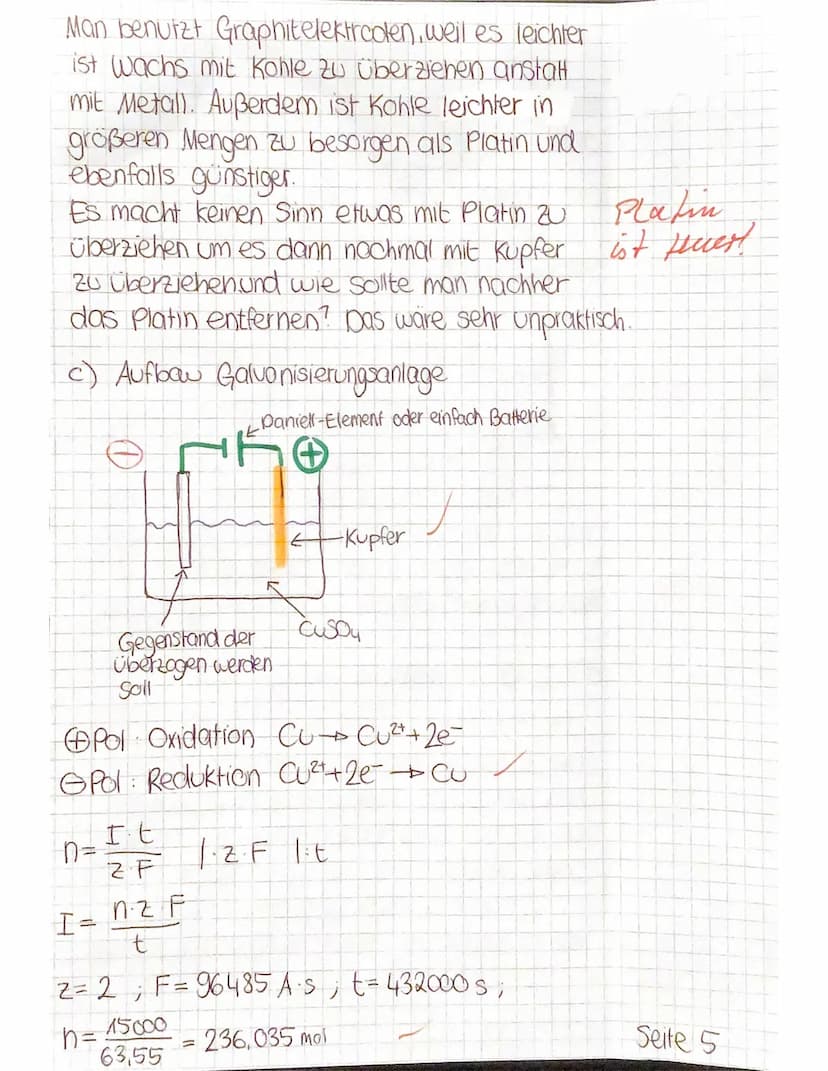 Man benutzt Graphitelektroden, weil es leichter
ist Wachs mit Kohle zu überziehen anstatt
mit Metall. Außerdem ist Kohle leichter in
größeren Mengen zu besorgen als Platin und
ebenfalls günstiger.
Es macht keinen Sinn etwas mit Platin zu
überziehen um es dann nochmal mit Kupfer
zu überziehen und wie sollte man nachher
das Platin entfernen? Das wäre sehr unpraktisch.
Platin
ist teuer!
c) Aufbau Galvonisierungsanlage
Daniell-Element oder einfach Batterie
⊖
⊕
Kupfer
CuSO₄
Gegenstand der
überzogen werden
soll
⊕Pol: Oxidation Cu → Cu²⁺ + 2e⁻
⊖Pol: Reduktion Cu²⁺ + 2e⁻ → Cu
n = I·t / z·F |·z·F |:t
I = n·z·F / t
z = 2 ; F = 96485 A·s ; t = 432000 s ;
n = 15000 / 63,55 = 236,035 mol
Seite 5